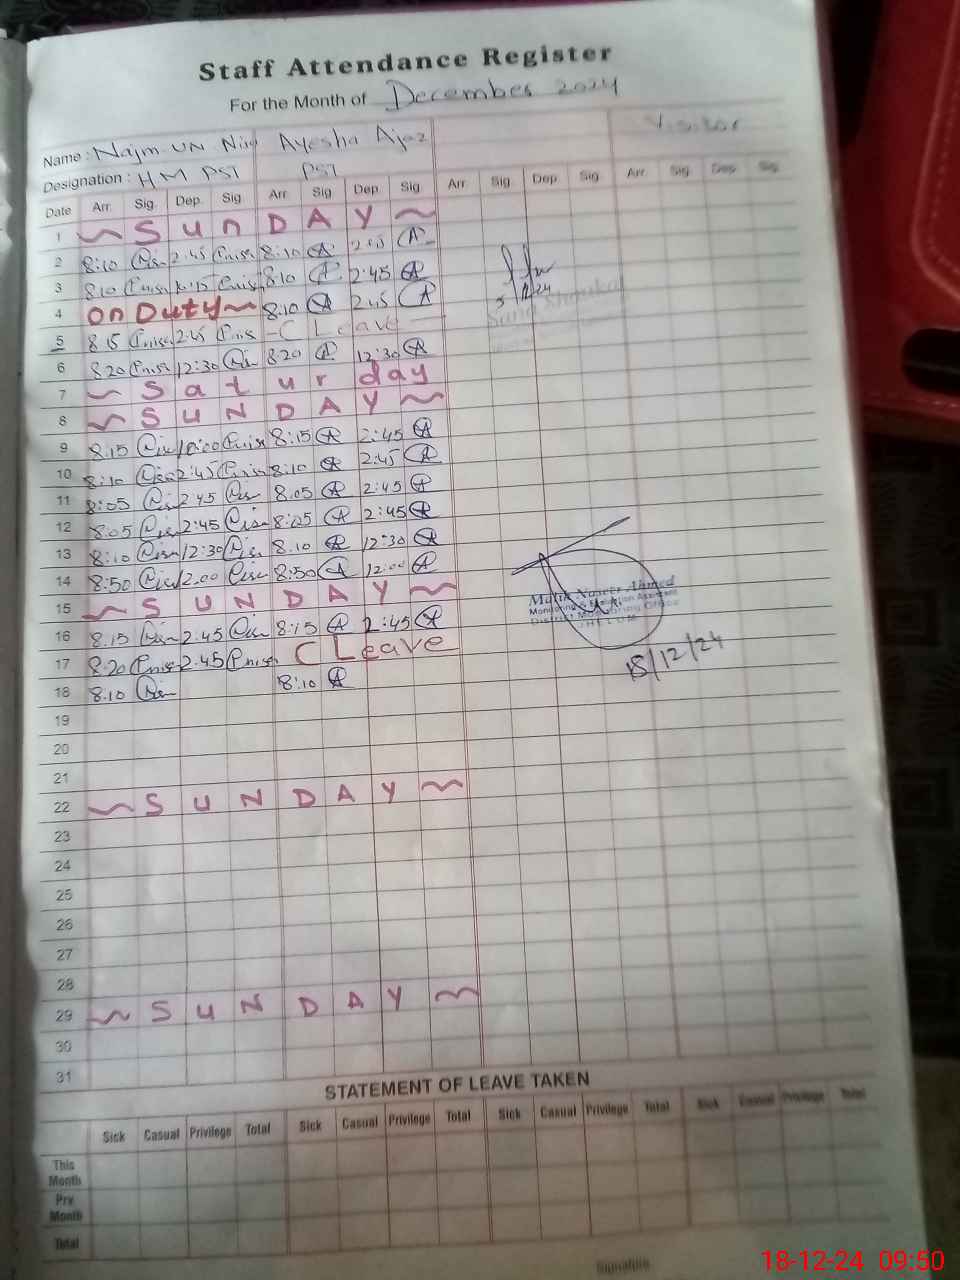 Staff Attendance Register
For the Month of December 2024
Name : Najm UN Nisa Ayesha Ajaz Visitor
Designation : HM PST PST
Date Arr. Sig. Dep. Sig Arr. Sig Dep. Sig Arr. Sig. Dep. Sig. Arr. Sig. Dep. Sig.
1 ~ S U n D A Y ~
2 8:10 2:45 8:10 A 2:45 A
3 8:10 8:10 A 2:45 A
4 on Duty ~ 8:10 A 2:45 A
5 8:15 2:45 - C Leave -
5/12/24
6 8:20 12:30 8:20 A 12:30 A
7 ~ S a t u r d a y
8 ~ S U N D A Y ~
9 8:15 8:15 A 2:45 A
10 8:10 2:45 8:10 A 2:45 A
11 8:05 2:45 8:05 A 2:45 A
12 8:05 2:45 8:05 A 2:45 A
13 8:10 12:30 8:10 A 12:30 A
14 8:50 12:00 8:50 A 12:00 A
15 ~ S U N D A Y ~
Malik Naseer Ahmed
Monitoring & Evaluation Assistant
District Monitoring Office
JHELUM
16 8:15 2:45 8:15 A 2:45 A
17 8:20 2:45 C Leave
18/12/24
18 8:10 8:10 A
19
20
21
22 ~ S U N D A Y ~
23
24
25
26
27
28
29 ~ S U N D A Y ~
30
31
STATEMENT OF LEAVE TAKEN
Sick Casual Privilege Total Sick Casual Privilege Total Sick Casual Privilege Total Sick Casual Privilege Total
This Month
Prv. Month
Total
Signature
18-12-24 09:50